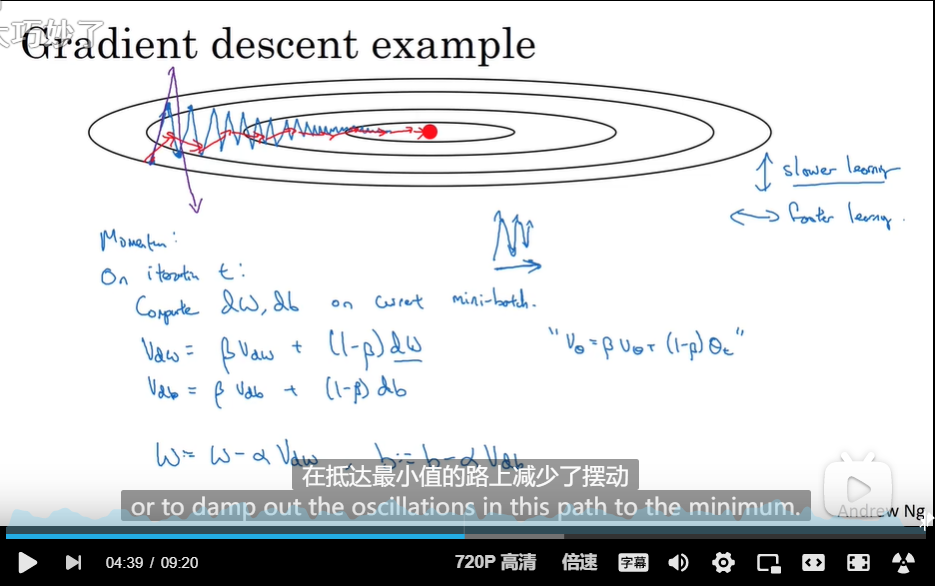 大巧妙了
Gradient descent example
slower learning
faster learning.
Momentum:
On iteration t:
Compute dW, db on current mini-batch.
Vdw = βVdw + (1-β)dW
"Vθ = βVθ + (1-β)θt"
Vdb = βVdb + (1-β)db
W := W - αVdw, b := b - αVdb
在抵达最小值的路上减少了摆动
or to damp out the oscillations in this path to the minimum.
Andrew Ng
04:39 / 09:20
720P 高清
倍速
字幕